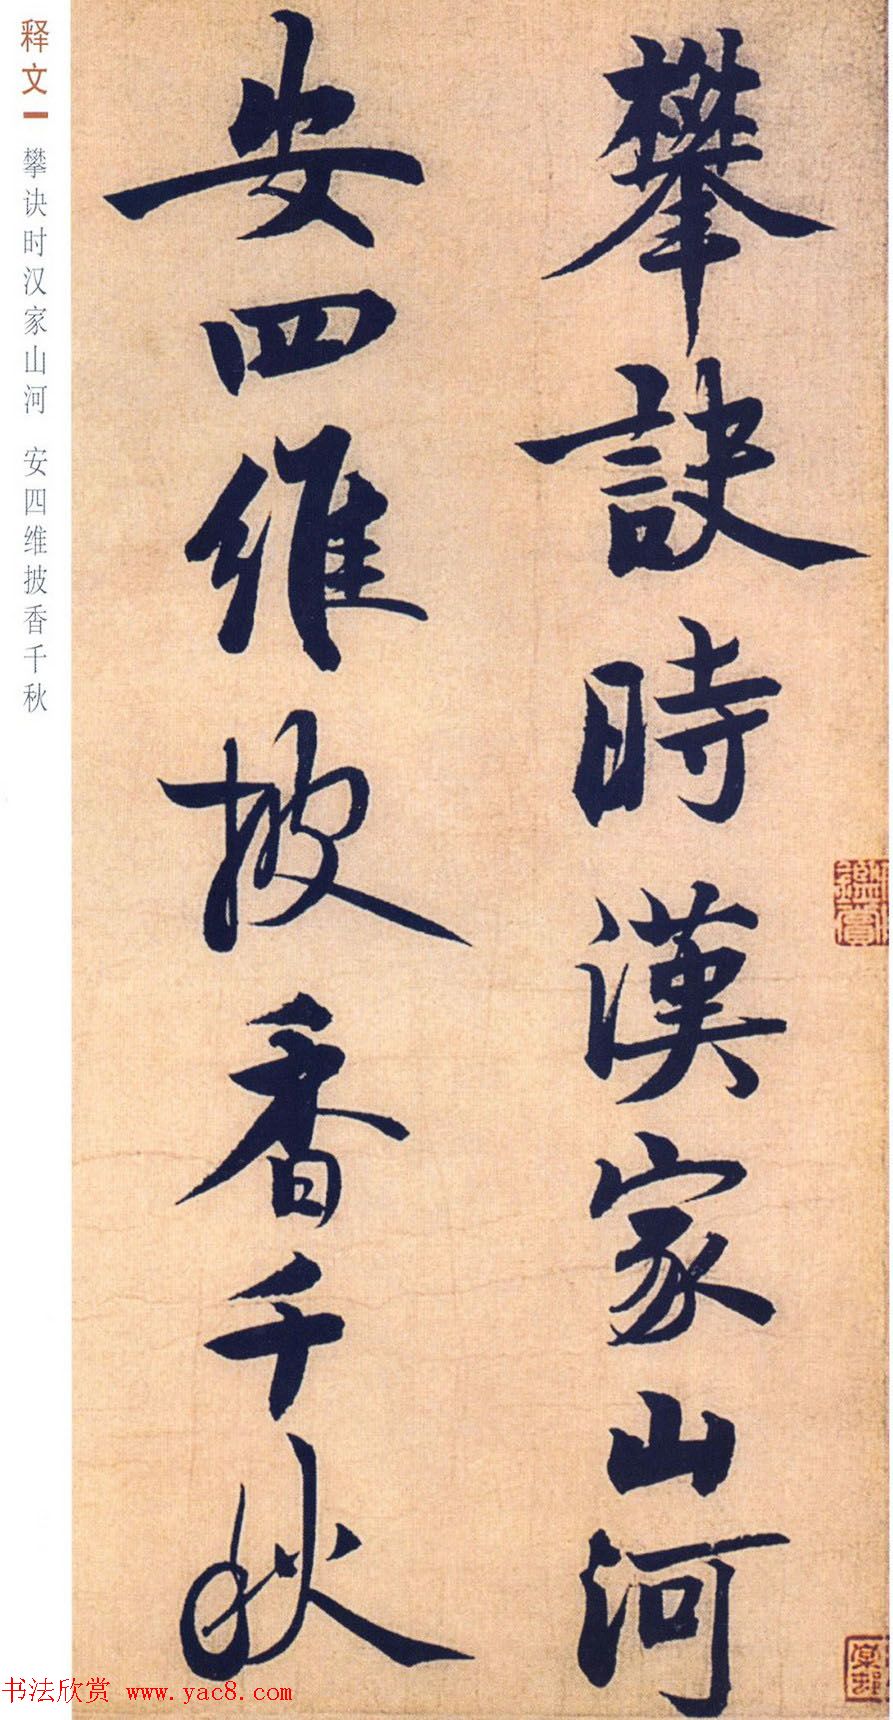 攀訣時漢家山河
安四維披香千秋
释文一 攀诀时汉家山河 安四维披香千秋
鑑賞
书法欣赏 www.yac8.com